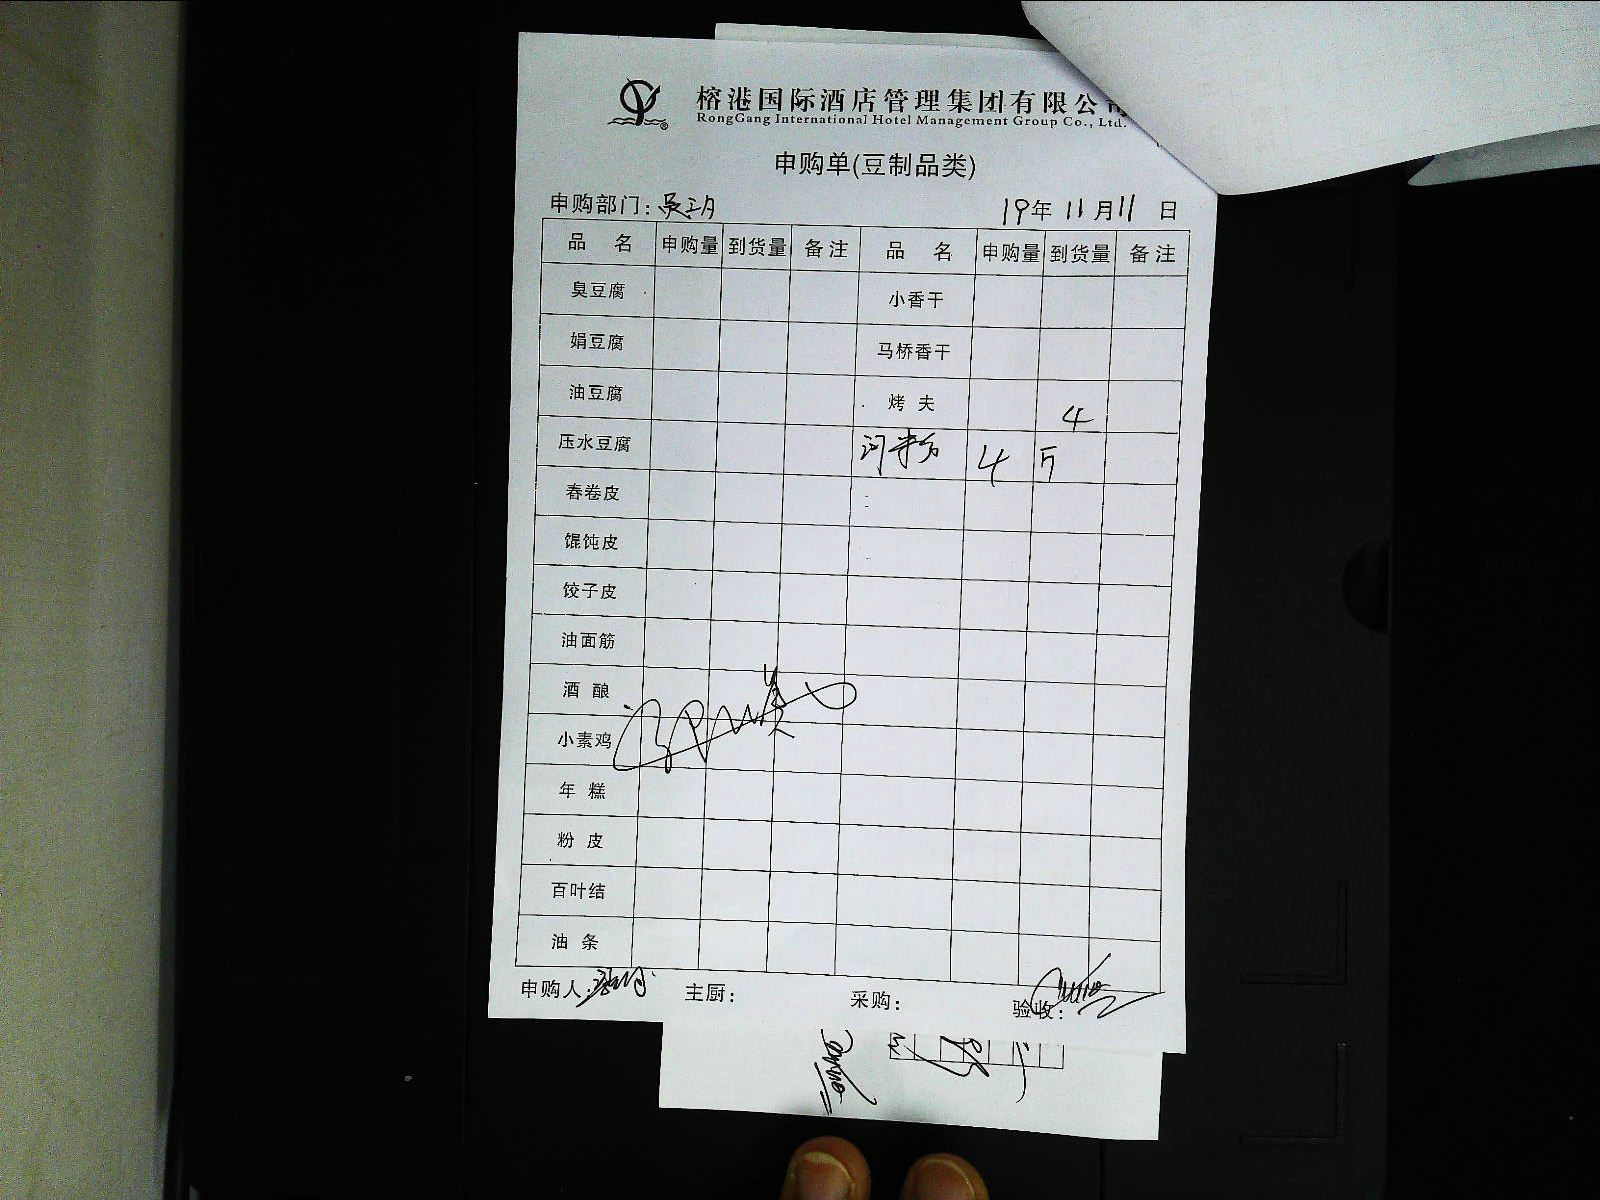 榕港国际酒店管理集团有限公司
RongGang International Hotel Management Group Co., Ltd.
申购单(豆制品类)
申购部门: 19年 11月11 日
品 名 申购量 到货量 备注 品 名 申购量 到货量 备注
臭豆腐 小香干
娟豆腐 马桥香干
油豆腐 烤夫 4
压水豆腐 河粉 4 斤
春卷皮
馄饨皮
饺子皮
油面筋
酒酿
小素鸡
年糕
粉皮
百叶结
油条
申购人: 主厨: 采购: 验收: